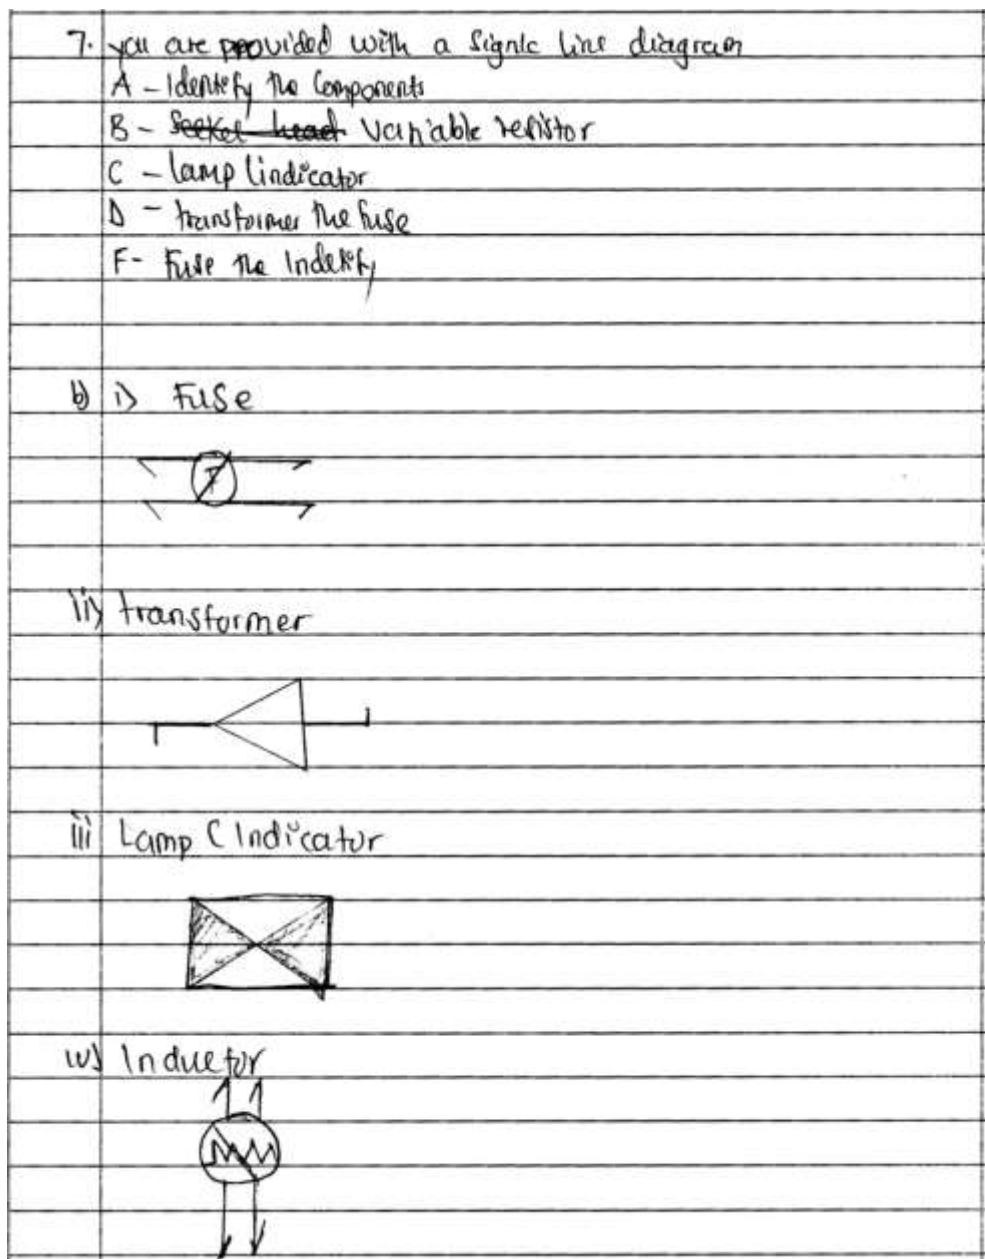 7. you are provided with a Signle line diagram
A - Identify the Components
B - Socket head Variable resistor
C - lamp lindicator
D - transformer the fuse
F- Fuse the Indetify
b) i) Fuse
F
ii) transformer
iii Lamp C Indicator
iv) Inductor